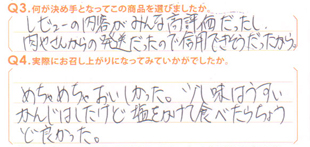 Q3.何が決め手となってこの商品を選びましたか。
レビューの内容がみんな高評価だったし、
肉やさんからの発送だったので信用できそうだったから。
Q4.実際にお召し上がりになってみていかがでしたか。
めちゃめちゃおいしかった。少し味はうすい
かんじはしたけど塩をかけて食べたらちょう
ど良かった。